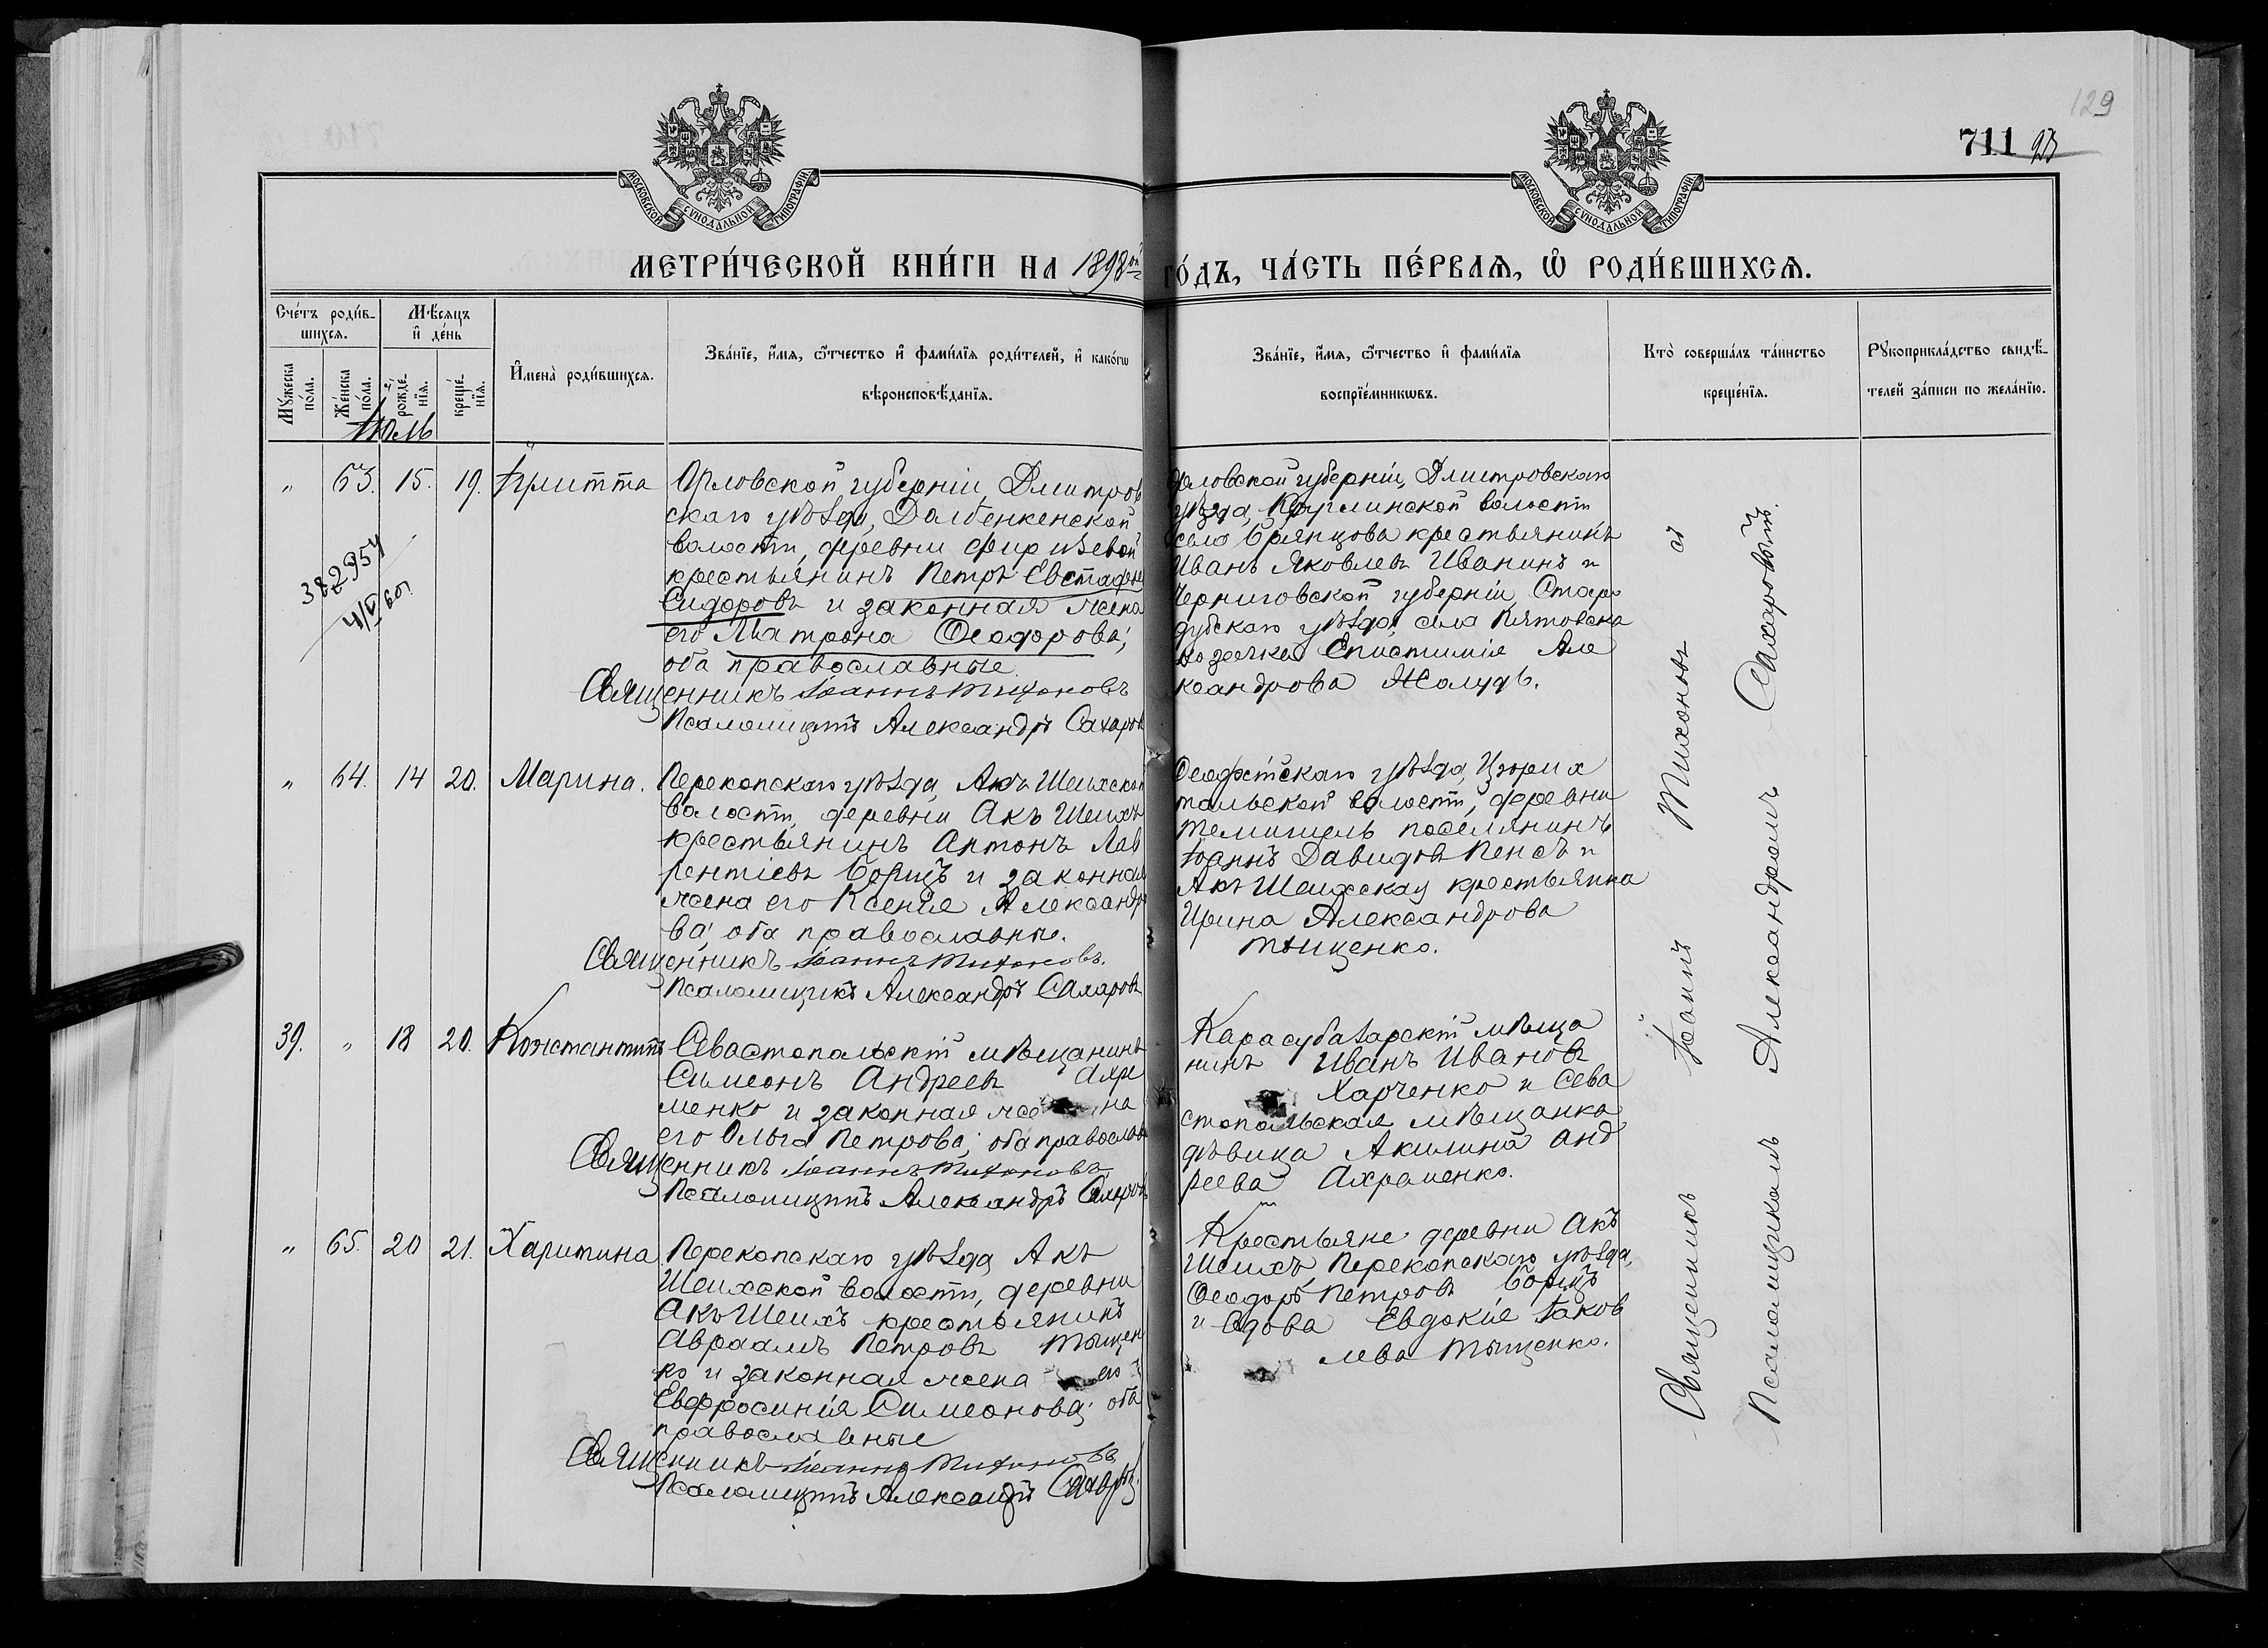 129
711 93
МОСКОВСКОЙ СѴНОДАЛЬНОЙ ТИПОГРАФІИ
МОСКОВСКОЙ СѴНОДАЛЬНОЙ ТИПОГРАФІИ
МЕТРИ́ЧЕСКОЙ КНИ́ГИ НА 1898ой ГО́ДЪ, ЧА́СТЬ ПЕ́РВАѦ, Ѽ РОДИ́ВШИХСѦ.
Сче́тъ роди́в-
шихсѧ.
Мѣ́сѧцъ
и҆ де́нь
Мꙋ́жеска
по́ла.
Же́нска
по́ла.
рожде-
нїѧ.
креще́-
нїѧ.
И҆мена̀ роди́вшихсѧ.
Зва́нїе, и҆́мѧ, ѻ҆́тчество и҆ фами́лїѧ роди́телей, и҆ како́гѡ
вѣроисповѣ́данїѧ.
Зва́нїе, и҆́мѧ, ѻ҆́тчество и҆ фами́лїѧ
воспрїе́мникѡвъ.
Кто̀ соверша́лъ та́инство
креще́нїѧ.
Рꙋкоприкла́дство свидѣ́-
телей за́писи по жела́нїю.
Іюль
" 63. 15. 19. Іулитта
382954
4/V 60г
Орловской губерніи, Дмитров
скаго уѣзда, Долбенкенской
волости, деревни
крестьянинъ Петръ Евстафіев
Сидоровъ и законная жена
его Матрона Ѳеодорова;
оба православные.
Священникъ Іоаннъ Тихоновъ
Псаломщикъ Александръ Сахаровъ
Орловской губерніи, Дмитровскаго
уѣзда, волости
село Брянцова крестьянинъ
Иванъ Яковлевъ Иванинъ и
Черниговской губерніи Старо
дубскаго уѣзда, села Пятовска
козачка Епистимія Але
ксандрова Жолудь.
" 64. 14 20. Марина.
Перекопскаго уѣзда, Акъ Шеихской
волости, деревни Акъ Шеихъ
крестьянинъ Антонъ Лав
рентіевъ Борщъ и законная
жена его Ксенія Александро
ва; оба православные.
Священникъ Іоаннъ Тихоновъ.
Псаломщикъ Александръ Сахаровъ
Ѳеодосійскаго уѣзда, Цюрих
тальской волости, деревни
поселянинъ
Іоаннъ Давидовъ Пенсъ и
Акъ Шеихская крестьянка
Ирина Александрова
Тыщенко.
39. " 18 20. Константинъ
Севастопольскій мѣщанинъ
Симеонъ Андреевъ Ахра
менко и законная жена
его Ольга Петрова; оба православн
Священникъ Іоаннъ Тихоновъ
Псаломщикъ Александръ Сахаровъ
Карасубазарскій мѣща
нинъ Иванъ Ивановъ
Харченко и Сева
стопольская мѣщанка
дѣвица Акилина Анд
реева Ахраменко.
" 65. 20 21. Харитина
Перекопскаго уѣзда, Акъ
Шеихской волости, деревни
Акъ Шеихъ крестьянинъ
Авраамъ Петровъ Тыщен
ко и законная жена его
Евфросинія Симеонова; оба
православные
Священникъ Іоаннъ Тихоновъ
Псаломщикъ Александръ Сахаровъ
Крестьяне деревни Акъ
Шеихъ, Перекопскаго уѣзда,
Ѳеодоръ Петровъ Борщъ
и вдова Евдокія Іаков
лева Тыщенко.
Священникъ Іоаннъ Тихоновъ съ
Псаломщикомъ Александромъ Сахаровымъ.